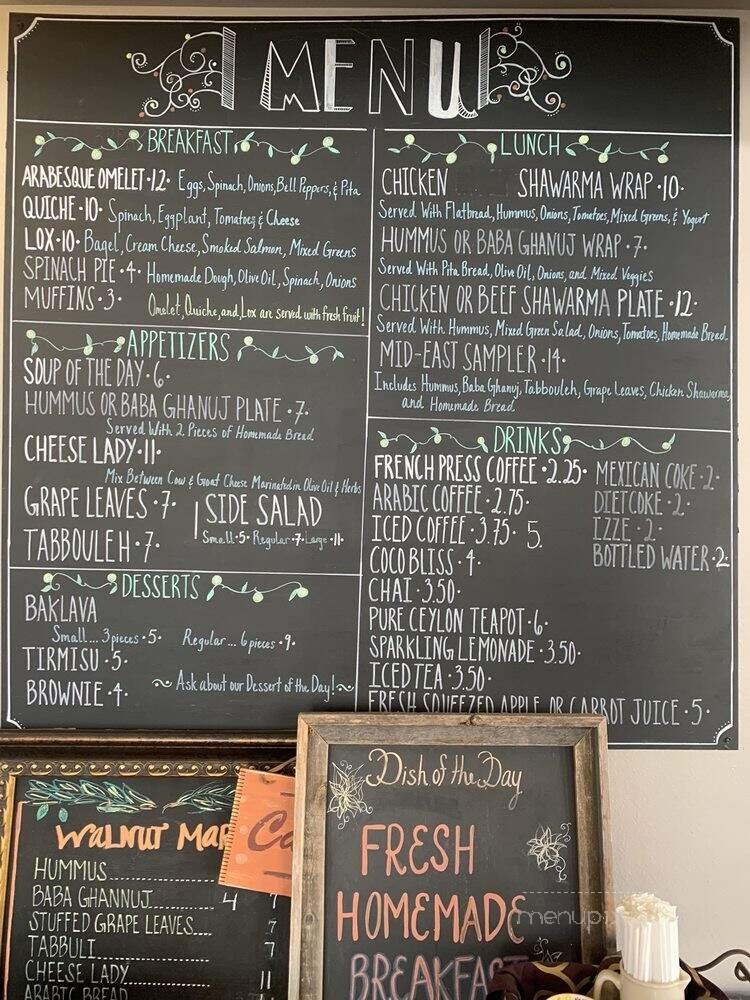 MENU
BREAKFAST
ARABESQUE OMELET · 12 · Eggs, Spinach, Onions, Bell Peppers, & Pita
QUICHE · 10 · Spinach, Eggplant, Tomatoes, & Cheese
LOX · 10 · Bagel, Cream Cheese, Smoked Salmon, Mixed Greens
SPINACH PIE · 4 · Homemade Dough, Olive Oil, Spinach, Onions
MUFFINS · 3 ·
Omelet, Quiche, and, Lox are served with fresh fruit!
APPETIZERS
SOUP OF THE DAY · 6 ·
HUMMUS OR BABA GHANUJ PLATE · 7 ·
Served With 2 Pieces of Homemade Bread
CHEESE LADY · 11 ·
Mix Between Cow & Goat Cheese Marinated in Olive Oil & Herbs
GRAPE LEAVES · 7 ·
TABBOULEH · 7 ·
SIDE SALAD
Small · 5 · Regular · 7 · Large · 11 ·
DESSERTS
BAKLAVA
Small... 3 pieces · 5 · Regular... 6 pieces · 9 ·
TIRMISU · 5 ·
BROWNIE · 4 ·
Ask about our Dessert of the Day!
LUNCH
CHICKEN SHAWARMA WRAP · 10 ·
Served With Flatbread, Hummus, Onions, Tomatoes, Mixed Greens, & Yogurt
HUMMUS OR BABA GHANUJ WRAP · 7 ·
Served With Pita Bread, Olive Oil, Onions, and Mixed Veggies
CHICKEN OR BEEF SHAWARMA PLATE · 12 ·
Served With Hummus, Mixed Green Salad, Onions, Tomatoes, Homemade Bread
MID-EAST SAMPLER · 14 ·
Includes Hummus, Baba Ghanuj, Tabbouleh, Grape Leaves, Chicken Shawarma,
and Homemade Bread
DRINKS
FRENCH PRESS COFFEE · 2.25 ·
ARABIC COFFEE · 2.75 ·
ICED COFFEE · 3.75 · 5.
COCO BLISS · 4 ·
CHAI · 3.50 ·
PURE CEYLON TEAPOT · 6 ·
SPARKLING LEMONADE · 3.50 ·
ICED TEA · 3.50 ·
FRESH SQUEEZED APPLE OR CARROT JUICE · 5 ·
MEXICAN COKE · 2 ·
DIET COKE · 2 ·
IZZE · 2 ·
BOTTLED WATER · 2 ·
WALNUT
HUMMUS
BABA GHANNUJ 4 7
STUFFED GRAPE LEAVES 7
TABBULI 7
CHEESE LADY 11
ARABIC BREAD
Dish of the Day
FRESH
HOMEMADE
BREAKFAST
menupix